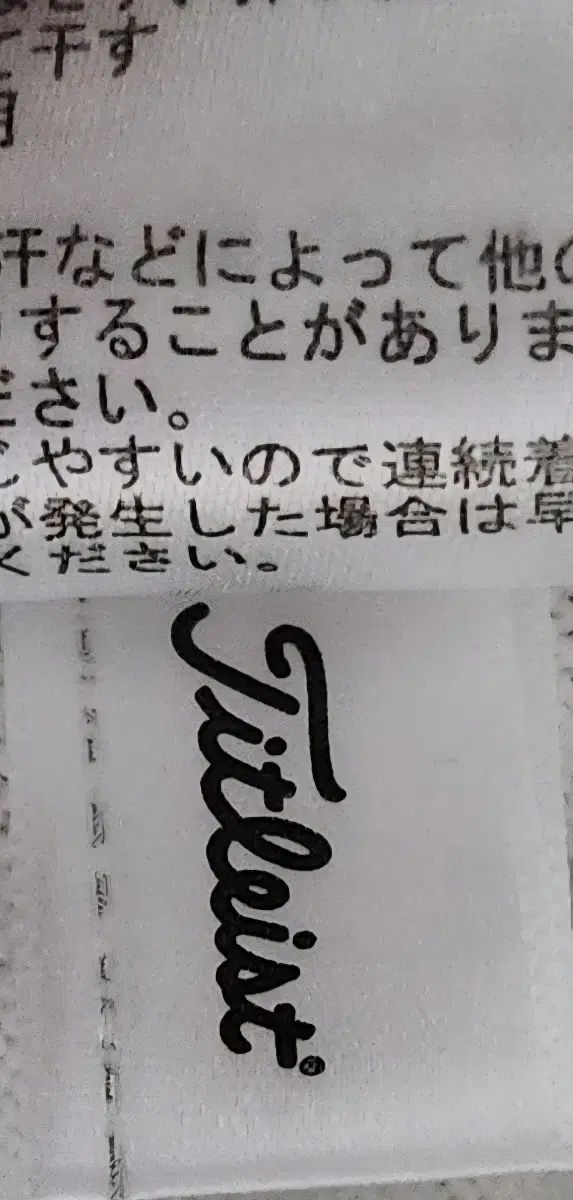 て干す
汗などによって他の
することがありま
ださい。
じやすいので連続着
が発生した場合は早
ください。
Titleist®